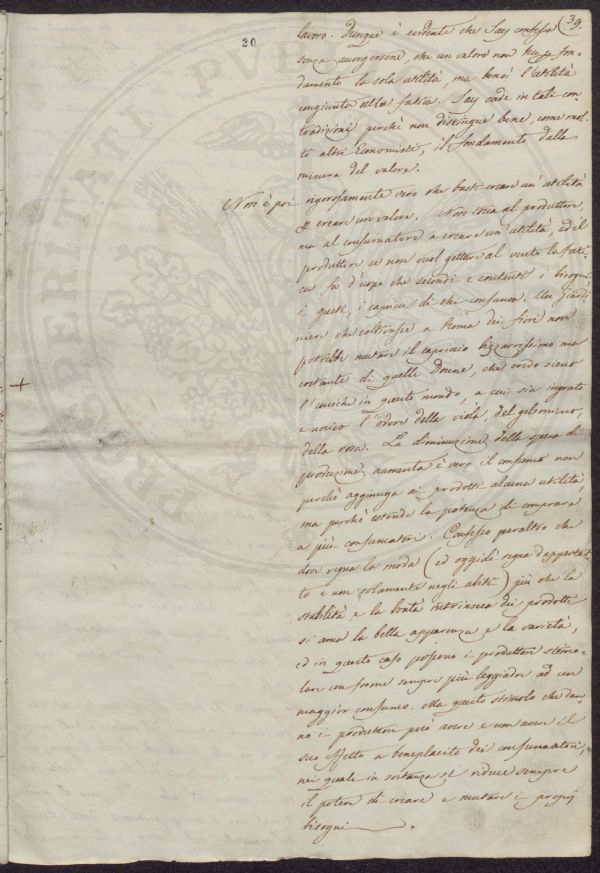 20
39.
lavoro. Dunque è evidente che Say confessa
senza accorgersene, che un valore non ha per fon-
damento la sola utilità, ma bensì l'utilità
congiunta alla fatica. Say cade in tali con-
tradizioni perchè non distingue bene, come mol-
to altri Economisti, il fondamento dalla
misura del valore.
Non è poi rigorosamente vero che basti creare un'utilità
per creare un valore. Non tocca al produttore,
ma al consumatore a creare un'utilità, ed il
produttore se non vuol gettare al vento la fati-
ca fa d'uopo che secondi e contenti i bisogni
i gusti, i capricci di chi consuma. Un giardi-
niere che coltivasse a Roma dei fiori non
potrebbe mutare il capriccio bizzarrissimo ma
costante di quelle Donne, che credo sieno
l'uniche in questo mondo, a cui sia ingrato
e nocivo l'odore della viola, del gelsomino,
della rosa. La diminuzione della spesa di
produzione aumenta è vero il consumo non
perchè aggiunga ai prodotti alcuna utilità,
ma perchè estende la potenza di comprare
a più consumatori. Confesso peraltro che
dove regna la moda (ed oggidì regna dappertut-
to e non solamente negli abiti) più che la
stabilità e la bontà intrinseca dei prodotti
si ama la bella apparenza e la varietà,
ed in questo caso possono i produttori stimo-
lare con forme sempre più leggiadre ad un
maggior consumo. Ma questo stimolo che dan-
no i produttori può avere e non avere il
suo effetto a beneplacito dei consumatori,
nei quali in sostanza si riduce sempre
il potere di creare e mutare i proprj
bisogni.
+